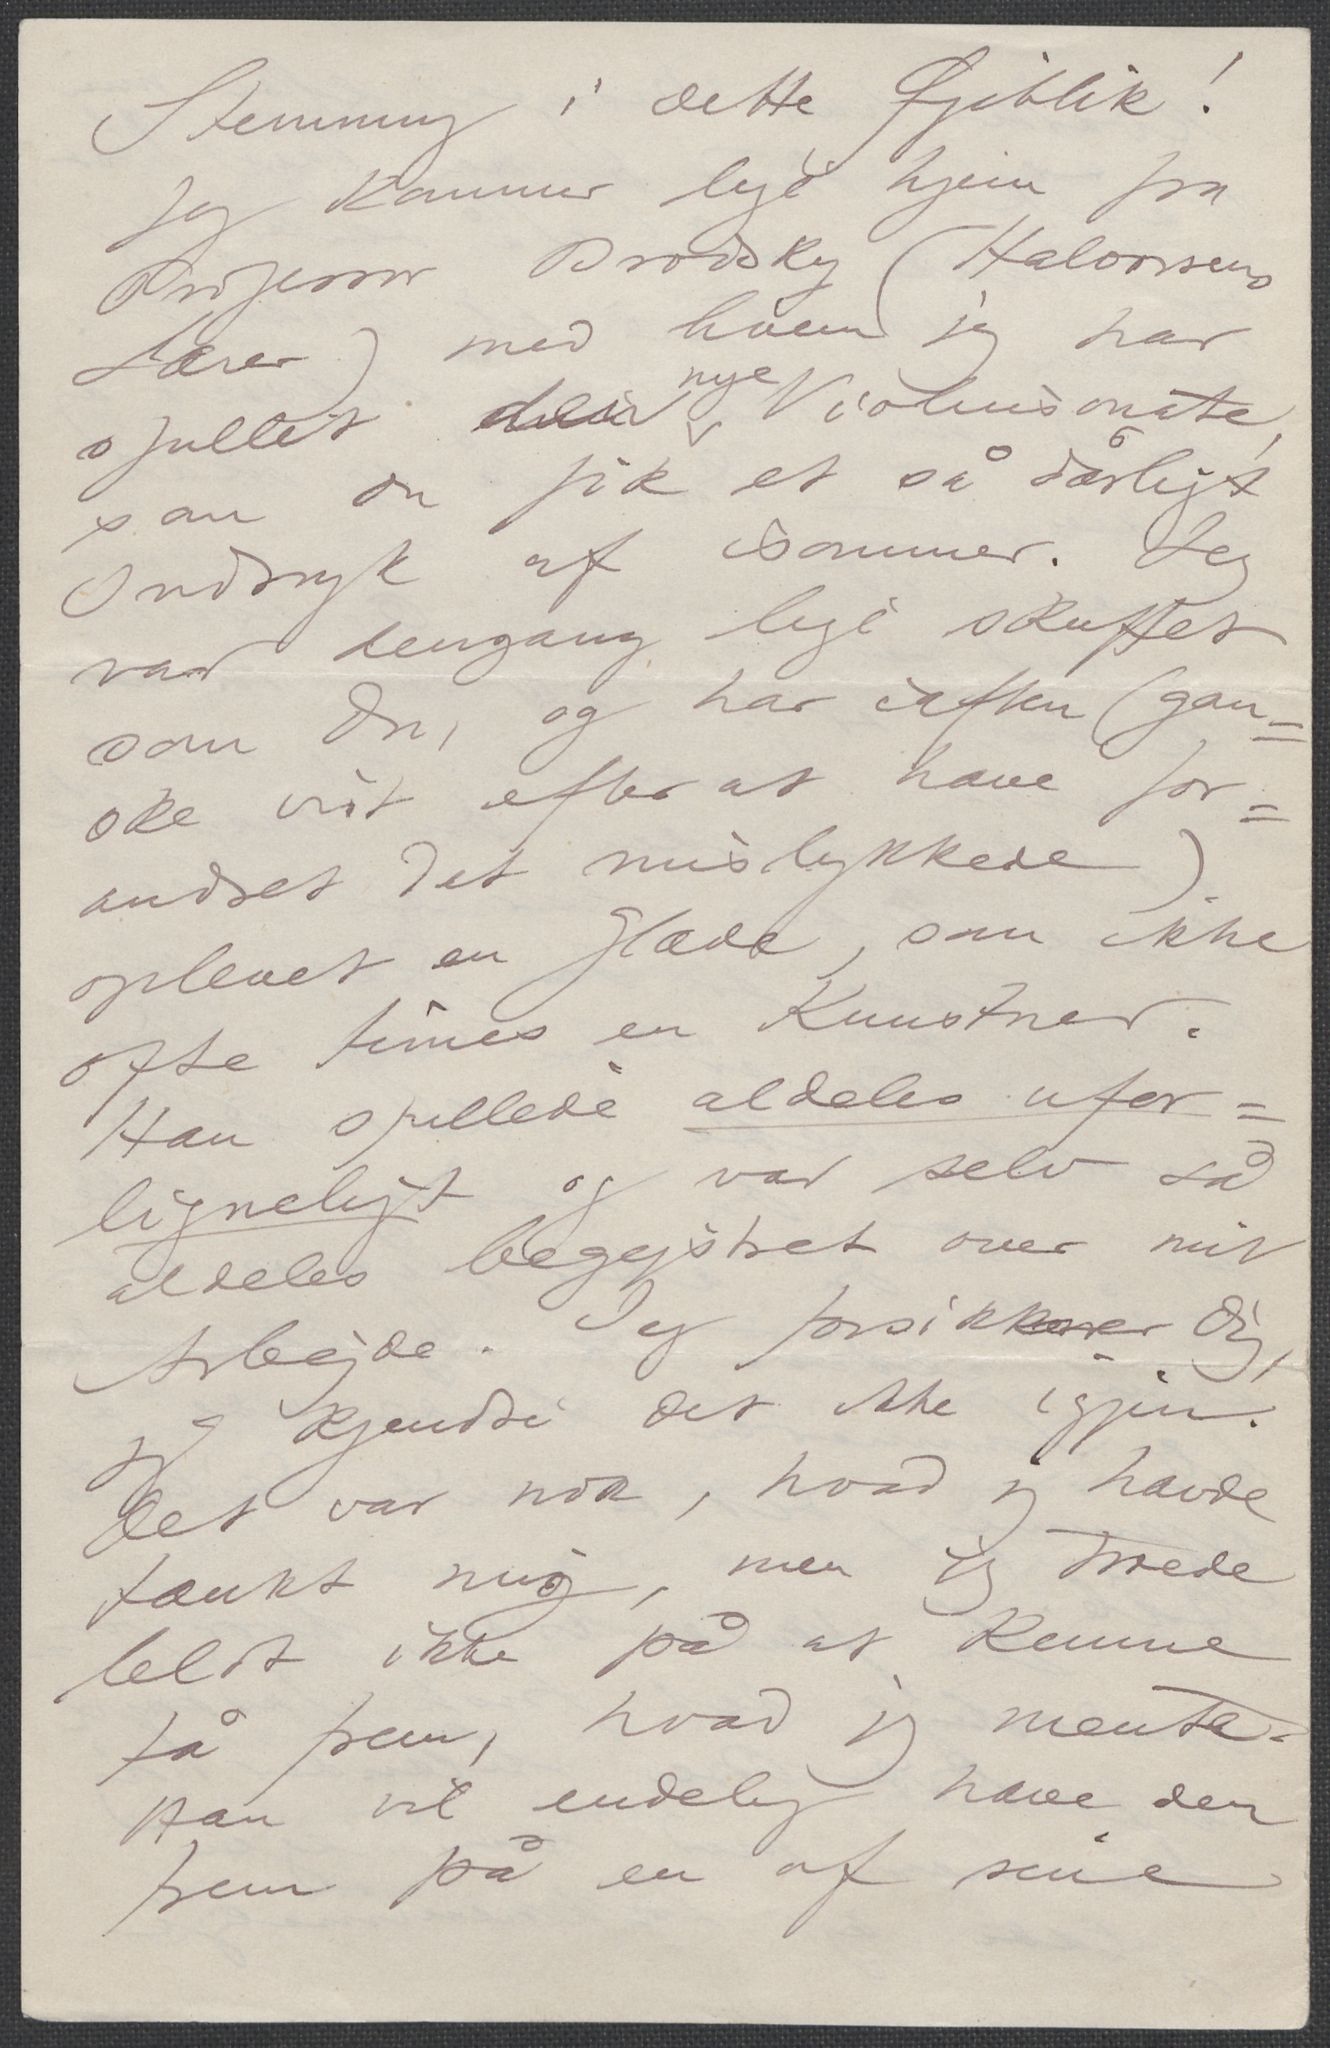 Stemning i dette Øjeblik!
Jeg kommer lige hjem fra
Professor Brodsky (Halvorsens
Lærer) med hvem jeg har
spillet den nye Violinsonate,
som du fik et så dårligt
Indtryk af isommer. Jeg
var dengang lige skuffet
som Du, og har iaften (gan=
ske vist efter at have for=
andret det mislykkede)
oplevet en Glæde, som ikke
ofte times en Kunstner.
Han spillede aldeles ufor=
ligneligt og var selv så
aldeles begejstret over mit
Arbejde. Jeg forsikkrer Dig,
jeg kjendte det ikke igjen.
Det var nok, hvad jeg havde
tænkt mig, men jeg troede
blot ikke på at kunne
få frem, hvad jeg mente.
Han vil endelig have den
frem på en af sine